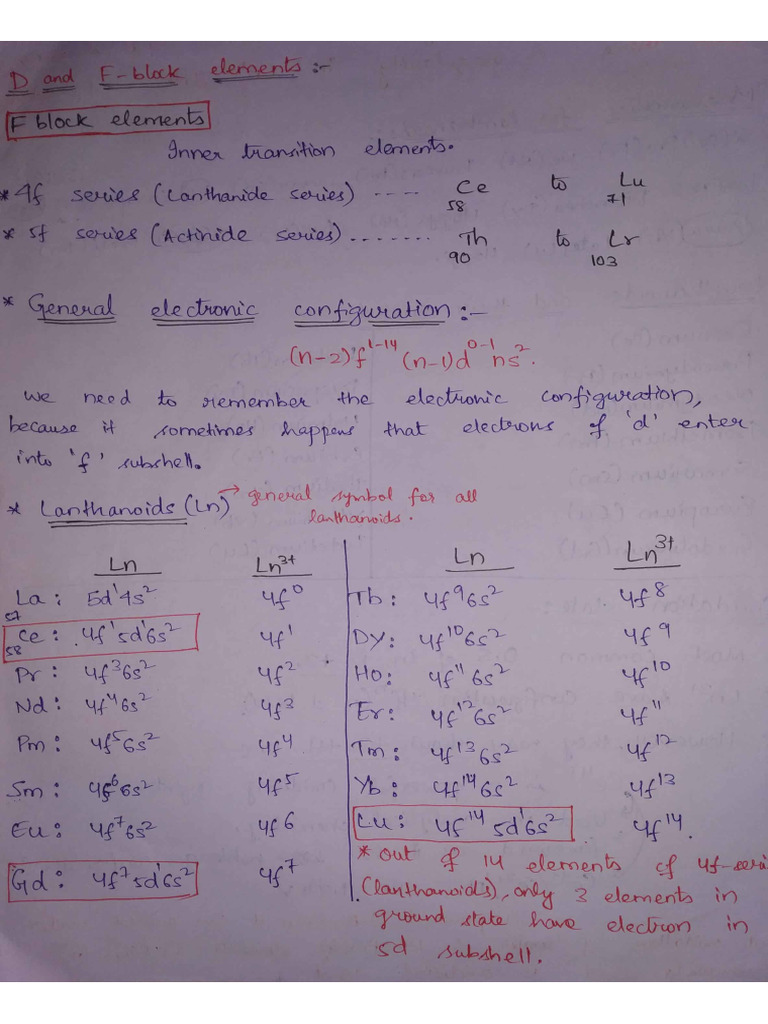 D and F-block elements:-
F block elements
Inner transition elements.
* 4f series (Lanthanide series) .... Ce to Lu
58 71
* 5f series (Actinide series)....... Th to Lr
90 103
* General electronic configuration:-
(n-2)f¹⁻¹⁴ (n-1)d⁰⁻¹ ns².
we need to remember the electronic configuration,
because it sometimes happens that electrons of 'd' enter
into 'f' subshell.
* Lanthanoids (Ln) → general symbol for all
lanthanoids.
Ln Ln³⁺
La: 5d¹4s² 4f⁰
57
Ce: 4f¹5d¹6s² 4f¹
58
Pr: 4f³6s² 4f²
Nd: 4f⁴6s² 4f³
Pm: 4f⁵6s² 4f⁴
Sm: 4f⁶6s² 4f⁵
Eu: 4f⁷6s² 4f⁶
Gd: 4f⁷5d¹6s² 4f⁷
Ln Ln³⁺
Tb: 4f⁹6s² 4f⁸
Dy: 4f¹⁰6s² 4f⁹
Ho: 4f¹¹6s² 4f¹⁰
Er: 4f¹²6s² 4f¹¹
Tm: 4f¹³6s² 4f¹²
Yb: 4f¹⁴6s² 4f¹³
Lu: 4f¹⁴5d¹6s² 4f¹⁴.
* out of 14 elements of 4f-seri
(lanthanoids), only 3 elements in
ground state have electron in
5d subshell.